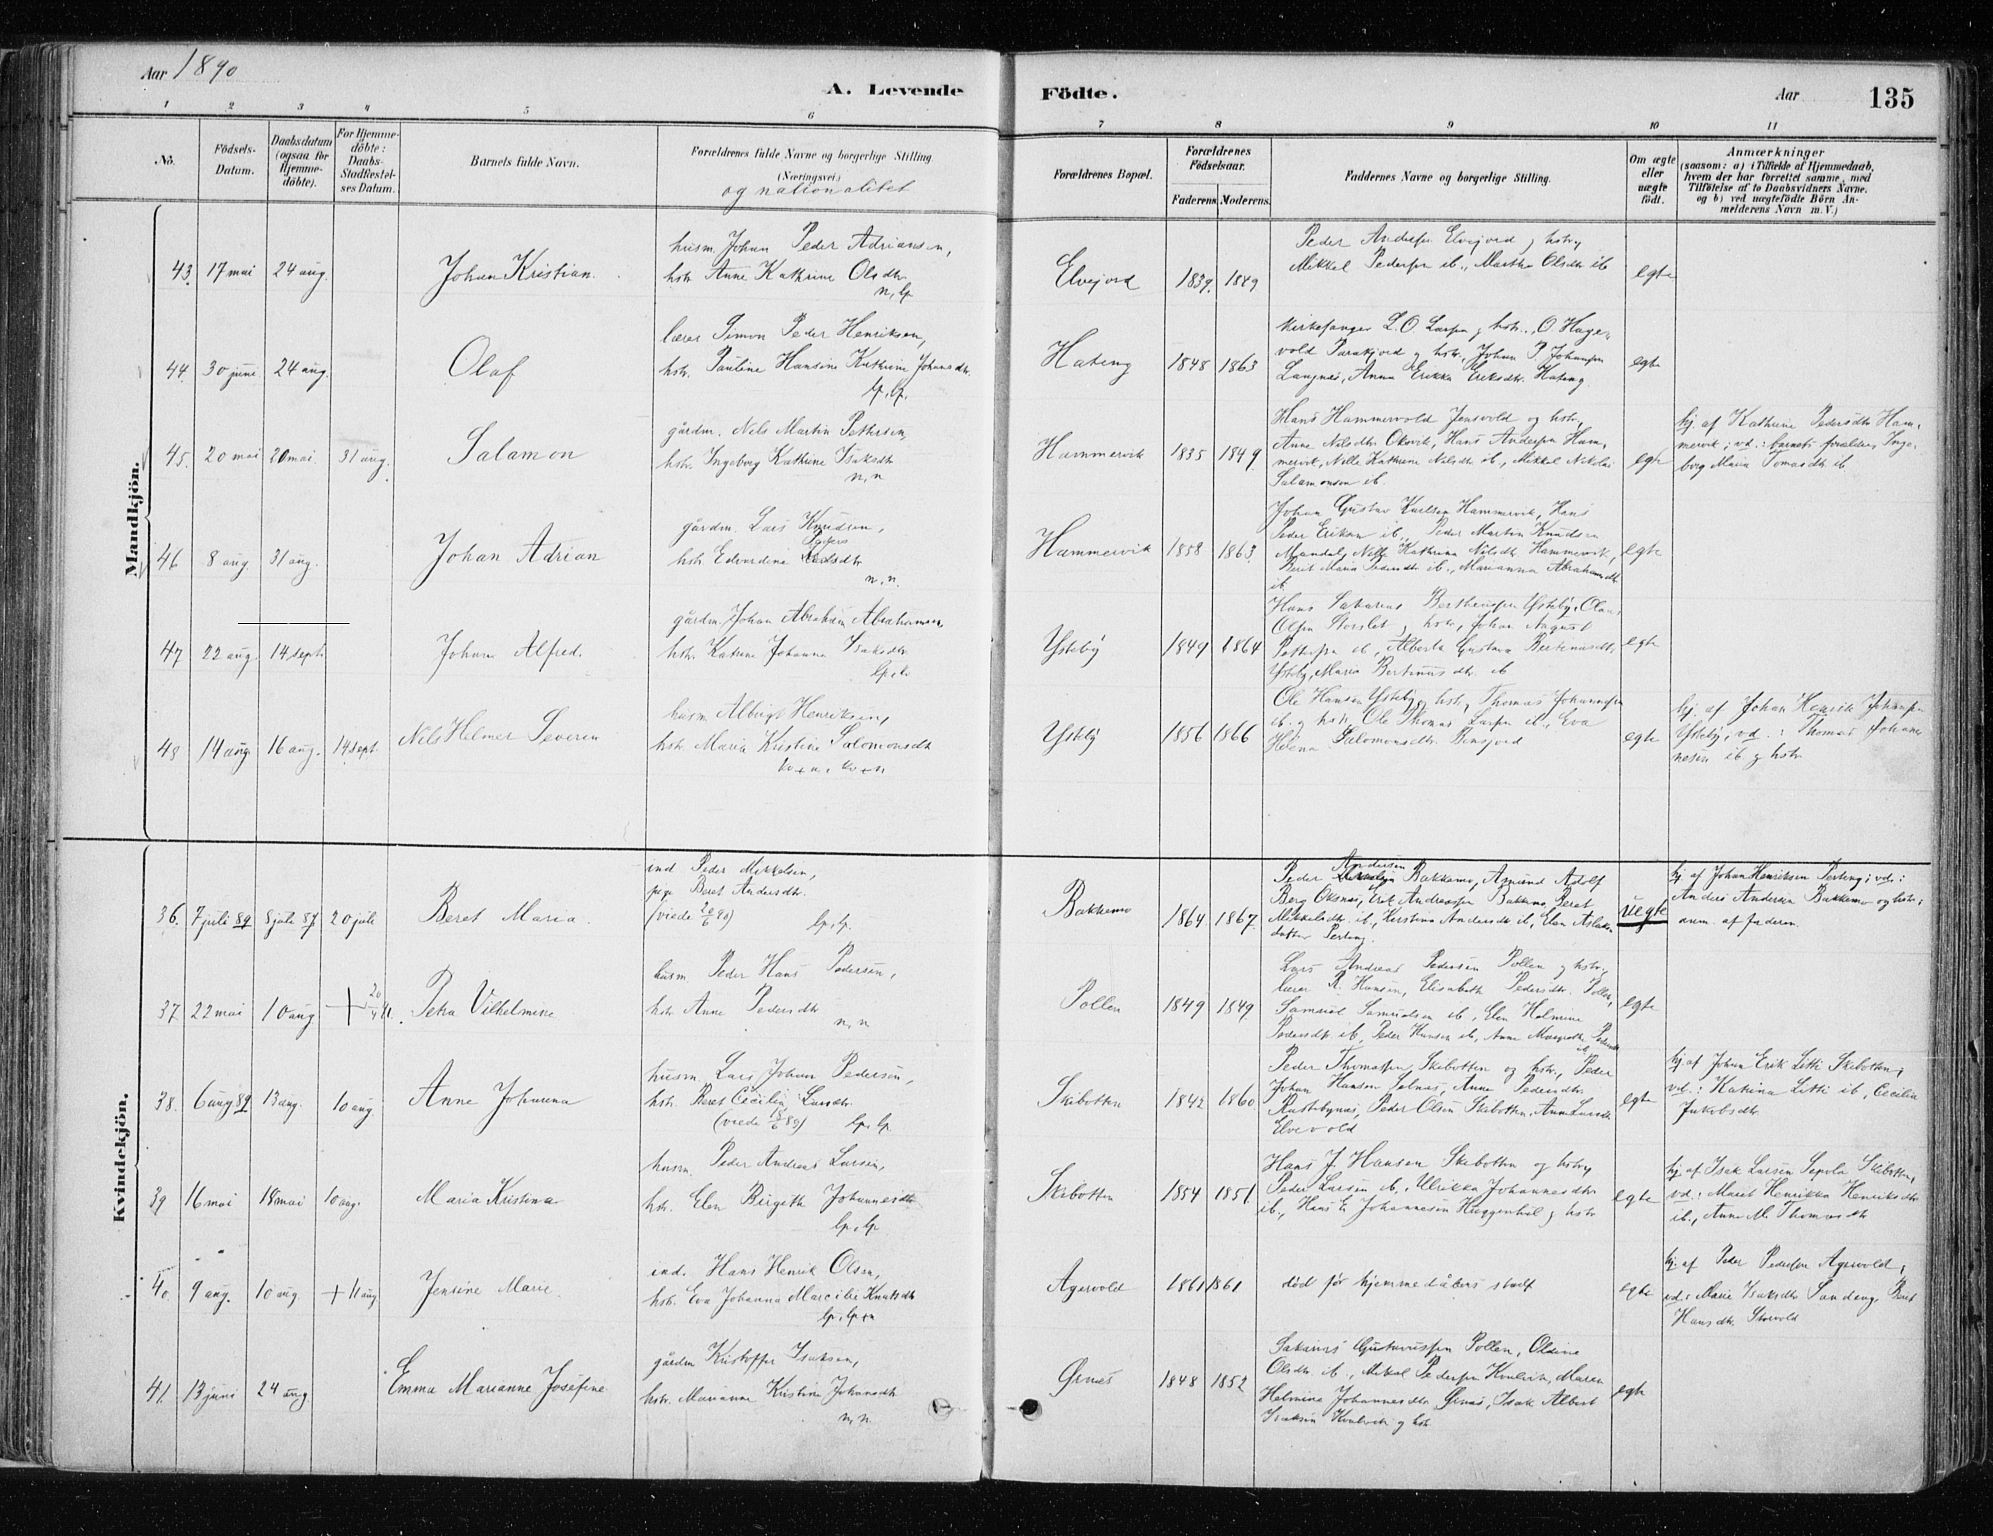 Aar 1890
A. Levende Födte.
Aar 135
1 2 3 4 5 6 7 8 9 10 11
No.
Födsels-Datum.
Daabsdatum (ogsaa for Hjemme-döbte).
For Hjemme-döbte: Daabs-Stadfæstel-ses Datum.
Barnets fulde Navn.
Forældrenes fulde Navne og borgerlige Stilling
(Næringsvei.)
og nationalitet
Forældrenes Bopæl.
Forældrenes Födselsaar.
Faderens. Moderens.
Faddernes Navne og borgerlige Stilling.
Om ægte eller uægte födt.
Anmærkninger
(saasom: a) i Tilfælde af Hjemmedaab, hvem der har forrettet samme, med Tilföielse af to Daabsvidners Navne. og b) ved uægtefödte Börn An-melderens Navn m. V.)
Mandkjön.
43. 17 mai 24 aug. Johan Kristian.
husm. Johan Peder Adriansen,
hstr. Anne Kathrine Olsdtr.
n, lp
Elvejord 1839. 1849
Peder Andersen Elvejord g hstr,
Mikkel Pedersen ib., Martha Olsdtr ib
egte
44. 30 june 24 aug. Olaf
lærer Simon Peder Henriksen,
hstr. Pauline Hansine Kathrine Johansdtr.
lp, lp.
Hateng 1848 1863
Kirkesanger L. O Larsen g hstr., O Hage-
vold g hstr., Johan P. Johansen
Langnes, Anna Erikka Eriksdtr. Hateng
egte
45. 20 mai 20 mai. 31 aug. Salamon
gårdm. Nils Martin Pettersen,
hstr. Ingeborg Kathrine Isaksdtr
n, n
Hammervik 1835 1849
Hans Hammervold Jensvold og hstr,
Anne Nilsdtr Oksvik, Hans Andersen Ham-
mervik, Nille Kathrine Nilsdtr ib., Mikkel Nikolai
Salamonsen ib.
egte
hj. af Kathrine Pedersdtr Ham-
mervik; vd.: barnets forældre, Inge-
borg Maria Tomasdtr ib.
46 8 aug. 31 aug. Johan Adrian
gårdm. Lars Knudsen,
hstr. Edvardine
n, n.
Hammervik 1858 1863.
Johan Gustav Karlsen Hammervik, Hans
Peder Eriksen ib., Peder Martin Knudsen
Mandal, Nille Kathrina Nilsdtr Hammervik,
Berit Maria Pedersdtr ib., Marianna Abrahamsdtr
ib.
egte
47 22 aug. 14 sept. Johan Alfred.
gårdm. Johan Abraham Abrahamsen
hstr. Katrine Johanna Isaksdtr
Ysteby 1849 1864
Hans Sakarias Bertheussen Ysteby, Olaus
Olsen Storslet g hstr, Johan August
Pettersen ib, Alberta Gustava Bertinusdtr
Ysteby, Maria Bertinusdtr. ib
egte
48 14 aug. 16 aug. 14 sept. Nils Helmer Severin
husm Albrigt Henriksen,
hstr. Maria Kristine Salomonsdtr
kv+n, kv+n
Ysteby 1856 1866
Ole Hansen Ysteby g hstr, Thomas Johannesen
ib. g hstr, Ole Thomas Larsen ib., Eva
Helena Salomonsdtr. Bensjord
egte
hj. af Johan Henrik Johansen
Ysteby; vd.: Thomas Johan-
nesen ib g hstr
Kvindekjön.
36. 7 juli 89 8 juli 87 20 juli Beret Maria.
ind Peder Mikkelsen,
pige Beret Andersdtr.
(viede 20/6 89) lp, lp.
Bakkemo 1864. 1867.
Peder Andersen Bakkemo, Amund Adolf
Berg Oksnes, Erik Andreassen Bakkemo, Beret
Mikkelsdtr ib, Kerstina Andersdtr ib, Elen Aslaksdatter Perteng.
uegte
hj. af Johan Henriksen Perteng; vd.:
Anders Andersen Bakkemo og hstr;
anm. af faderen.
37. 22 mai 10 aug + 20/4 91. Petra Vilhelmine
husm. Peder Hans Pedersen,
hstr Anne Pedersdtr
n, n
Pollen 1849 1849
Lars Andreas Pedersen Pollen g hstr,
lærer R. Hansen, Elisabeth Pedersdtr. Pollen,
Samuel Samuelsen ib, Elen Helmine
Pedersdtr. ib, Peder Hansen ib, Anne Margrethe Pedersdtr
ib
egte
38. 6 aug 89 13 aug. 10 aug. Anne Johanna
husm. Lars Johan Pedersen,
hstr. Beret Cecilia Larsdtr.
(viede 18/6 89) lp, lp.
Skibotten 1842 1860
Peder Thomassen Skibotten og hstr, Peder
Johan Hansen Selnes, Anne Pedersdtr.
Rastebynes, Peder Olsen Skibotten, Anne Larsdtr
Elvevold
egte
hj af Johan Erik Litti Skibotten;
vd.: Katrina Litti ib., Cecilia
Jakobsdtr.
39 16 mai 18 mai 10 aug. Maria Kristina
husm. Peder Andreas Larsen,
hstr. Elen Birgith Johannesdtr
lp, lp
Skibotten 1854 1851
Hans J. Hansen Skibotten og hstr,
Peder Larsen ib., Ulrikka Johannesdtr
ib., Hans E Johannesen Haggenhal g hstr
egte
hj. af Isak Larsen Sepola Skibotten,
vd.: Maret Henrikka Henriksdtr
ib., Anne M. Thomasdtr
40. 9 aug. 10 aug + 11 aug Jensine Marie.
ind. Hans Henrik Olsen,
hstr. Eva Johanna Marcilie Knutsdtr
lp, lp+n
Agervold 1861 1861
død før hjemmedåbens stadf
egte
hj. af Peder Pedersen Agervold;
vd.: Marie Isaksdtr Sandeng, Beret
Hansdtr. Storvold
41. 13 juni 24 aug. Emma Marianne Josefine
gårdm Kristoffer Isaksen,
hstr. Marianne Kristine Johansdtr
n, n.
Grnes 1848 1852
Sakarias Gustavussen Pollen, Oldine
Olsdtr ib., Mikal Pedersen Kvalvik, Maren
Helmine Johannesdtr Grnes, Isak Albert
Isaksen Kvalvik g hstr
egte